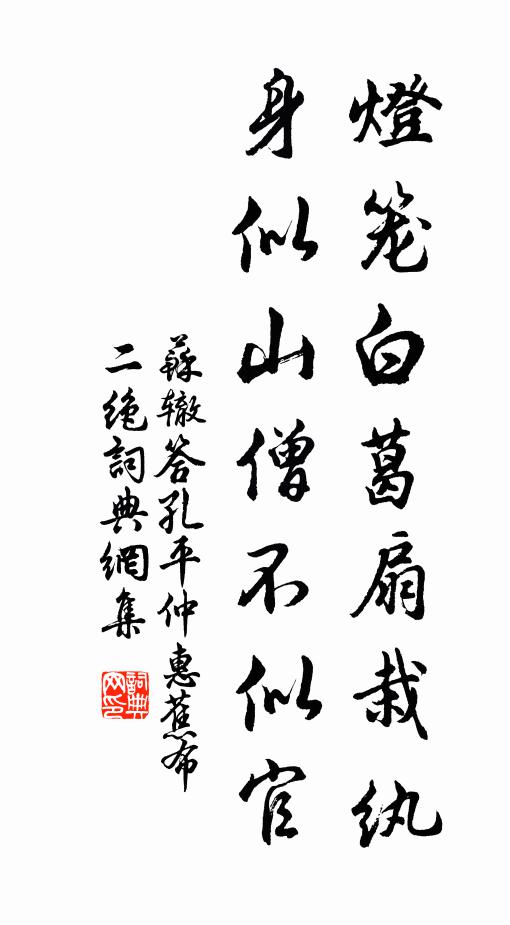 燈笼白葛扇栽纨
身似山僧不似官
蘇辙答孔平仲惠蕉布
二绝詞典網集
詞典
网印